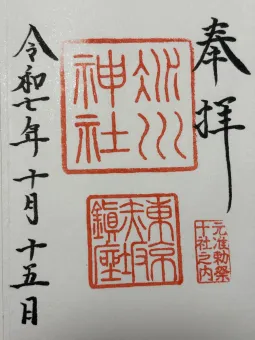 奉拝
氷川
神社
元准勅祭
十社之内
東京
赤坂
鎮座
令和七年十月十五日